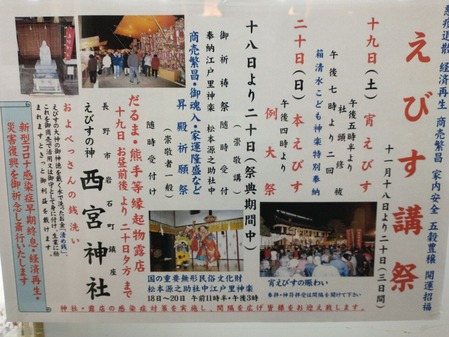 悪疫退散 経済再生 商売繁昌 家内安全 五穀豊穣 開運招福
えびす講祭
十一月十八日より二十日（三日間）
十九日（土）宵えびす
午後五時半より
社頭修祓
午後七時より二回
箱清水こども神楽特別奉納
二十日（日）本えびす
午後四時より
例大祭
十八日より二十日（祭典期間中）
御祈祷祭 随時受付中
（崇敬講）
奉納江戸里神楽 松本源之助社中
商売繁昌・御魂入・家運隆盛など
昇殿祈願祭
随時受付
（崇敬者一般）
だるま・熊手等縁起物露店
十九日お昼前後より二十日夕方まで
長野市岩石町鎮座
えびすの神 西宮神社
およべっさんの銭洗い
えびすの大神の御神徳を戴く水で洗ったお金「清め銭」。
新型コロナ感染症早期終息・経済再生・
災害復興を御祈念し斎行いたします
国の重要無形民俗文化財
松本源之助社中江戸里神楽
18日〜20日 午前11時半・午後3時
宵えびすの賑わい
参拝・神符拝受は間隔を開けて下さい
神社・露店の感染症対策を実施し、間隔を広げ皆様をお迎え致します。